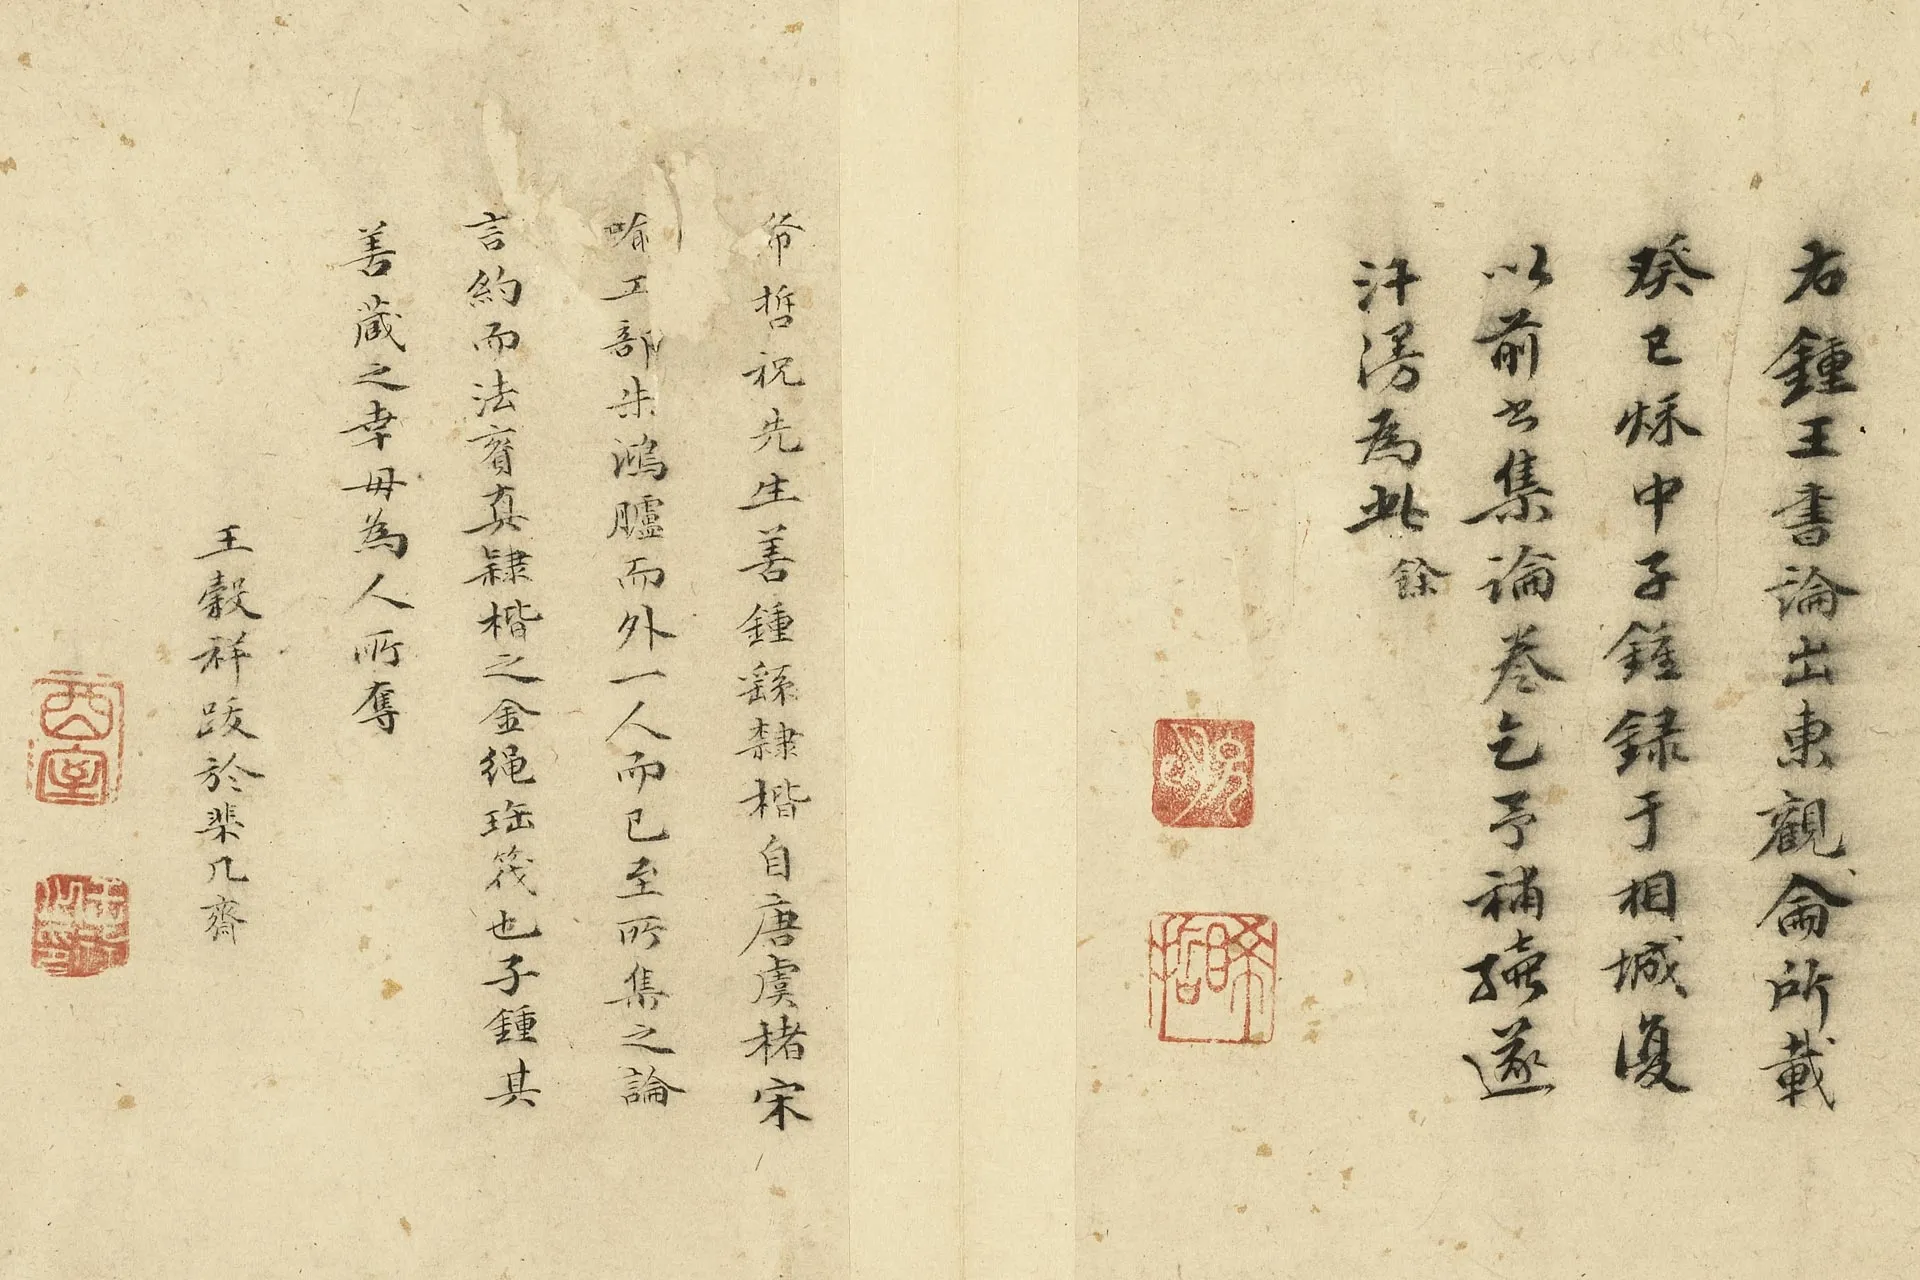 右鍾王書論出東觀侖所載
癸巳秌中子鍾録于相城復
以前書集論卷乞予補續遂
汗漫為此
餘
希哲祝先生善鍾繇隸楷自唐虞褚宋
喻工部朱鴻臚而外一人而已至所集之論
言約而法賓真隸楷之金繩珤筏也子鍾其
善藏之幸毋為人所奪
王穀祥跋於棐几齋
酉室
晞哲